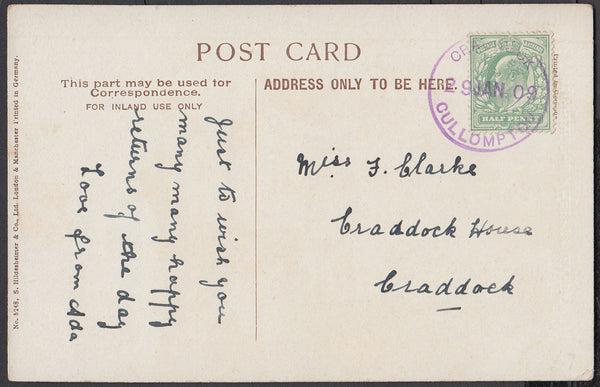 POST CARD
This part may be used for
Correspondence.
FOR INLAND USE ONLY
ADDRESS ONLY TO BE HERE.
Just to wish you
many many happy
returns of the day
Love from Ada
Miss F. Clarke
Craddock House
Craddock
29 JAN 09
CULLOMPTON
HALF PENNY
No. 5248, S. Hildesheimer & Co., Ltd. London & Manchester Printed in Germany.